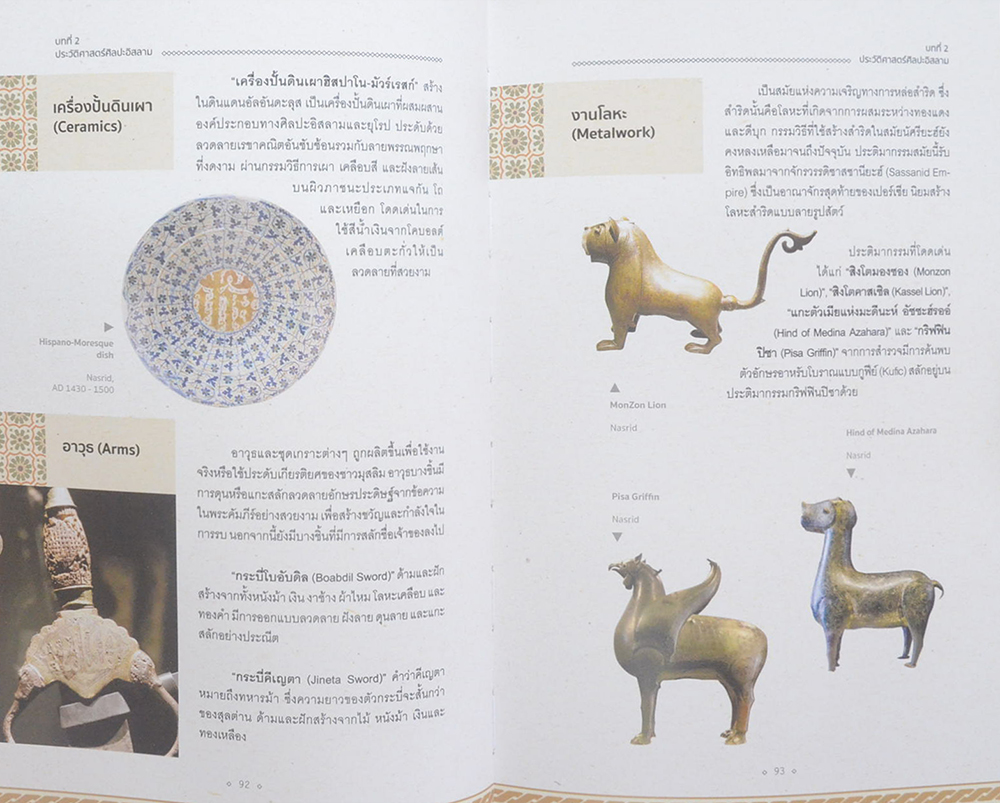 บทที่ 2
ประวัติศาสตร์ศิลปะอิสลาม
เครื่องปั้นดินเผา
(Ceramics)
"เครื่องปั้นดินเผาฮิสปาโน-มัวร์เรสก์" สร้าง
ในดินแดนอัลอันดะลุส เป็นเครื่องปั้นดินเผาที่ผสมผสาน
องค์ประกอบทางศิลปะอิสลามและยุโรป ประดับด้วย
ลวดลายเรขาคณิตอันซับซ้อนรวมกับลายพรรณพฤกษา
ที่งดงาม ผ่านกรรมวิธีการเผา เคลือบสี และฝังลายเส้น
บนผิวภาชนะประเภทแจกัน โถ
และเหยือก โดดเด่นในการ
ใช้สีน้ำเงินจากโคบอลต์
เคลือบตะกั่วให้เป็น
ลวดลายที่สวยงาม
Hispano-Moresque
dish
Nasrid,
AD 1430 - 1500
อาวุธ (Arms)
อาวุธและชุดเกราะต่างๆ ถูกผลิตขึ้นเพื่อใช้งาน
จริงหรือใช้ประดับเกียรติยศของชาวมุสลิม อาวุธบางชิ้นมี
การดุนหรือแกะสลักลวดลายอักษรประดิษฐ์จากข้อความ
ในพระคัมภีร์อย่างสวยงาม เพื่อสร้างขวัญและกำลังใจใน
การรบ นอกจากนี้ยังมีบางชิ้นที่มีการสลักชื่อเจ้าของลงไป
"กระบี่โบอับดิล (Boabdil Sword)" ด้ามและฝัก
สร้างจากทั้งหนังม้า เงิน งาช้าง ผ้าไหม โลหะเคลือบ และ
ทองคำ มีการออกแบบลวดลาย ฝังลาย ดุนลาย และแกะ
สลักอย่างประณีต
"กระบี่คีเญตา (Jineta Sword)" คำว่าคีเญตา
หมายถึงทหารม้า ซึ่งความยาวของตัวกระบี่จะสั้นกว่า
ของสุลต่าน ด้ามและฝักสร้างจากไม้ หนังม้า เงินและ
ทองเหลือง
92
บทที่ 2
ประวัติศาสตร์ศิลปะอิสลาม
งานโลหะ
(Metalwork)
เป็นสมัยแห่งความเจริญทางการหล่อสำริด ซึ่ง
สำริดนั้นคือโลหะที่เกิดจากการผสมระหว่างทองแดง
และดีบุก กรรมวิธีที่ใช้สร้างสำริดในสมัยนัศรียะฮ์ยัง
คงหลงเหลือมาจนถึงปัจจุบัน ประติมากรรมสมัยนี้รับ
อิทธิพลมาจากจักรวรรดิซาสซานียะฮ์ (Sassanid Em-
pire) ซึ่งเป็นอาณาจักรสุดท้ายของเปอร์เซีย นิยมสร้าง
โลหะสำริดแบบลายรูปสัตว์
ประติมากรรมที่โดดเด่น
ได้แก่ "สิงโตมองซอง (Monzon
Lion)", "สิงโตคาสเซิล (Kassel Lion)",
"แกะตัวเมียแห่งมะดีนะห์ อัซซะฮ์รออ์
(Hind of Medina Azahara)" และ "กริฟฟิน
ปิซา (Pisa Griffin)" จากการสำรวจมีการค้นพบ
ตัวอักษรอาหรับโบราณแบบกูฟีย์ (Kufic) สลักอยู่บน
ประติมากรรมกริฟฟินปิซาด้วย
MonZon Lion
Nasrid
Hind of Medina Azahara
Nasrid
Pisa Griffin
Nasrid
93